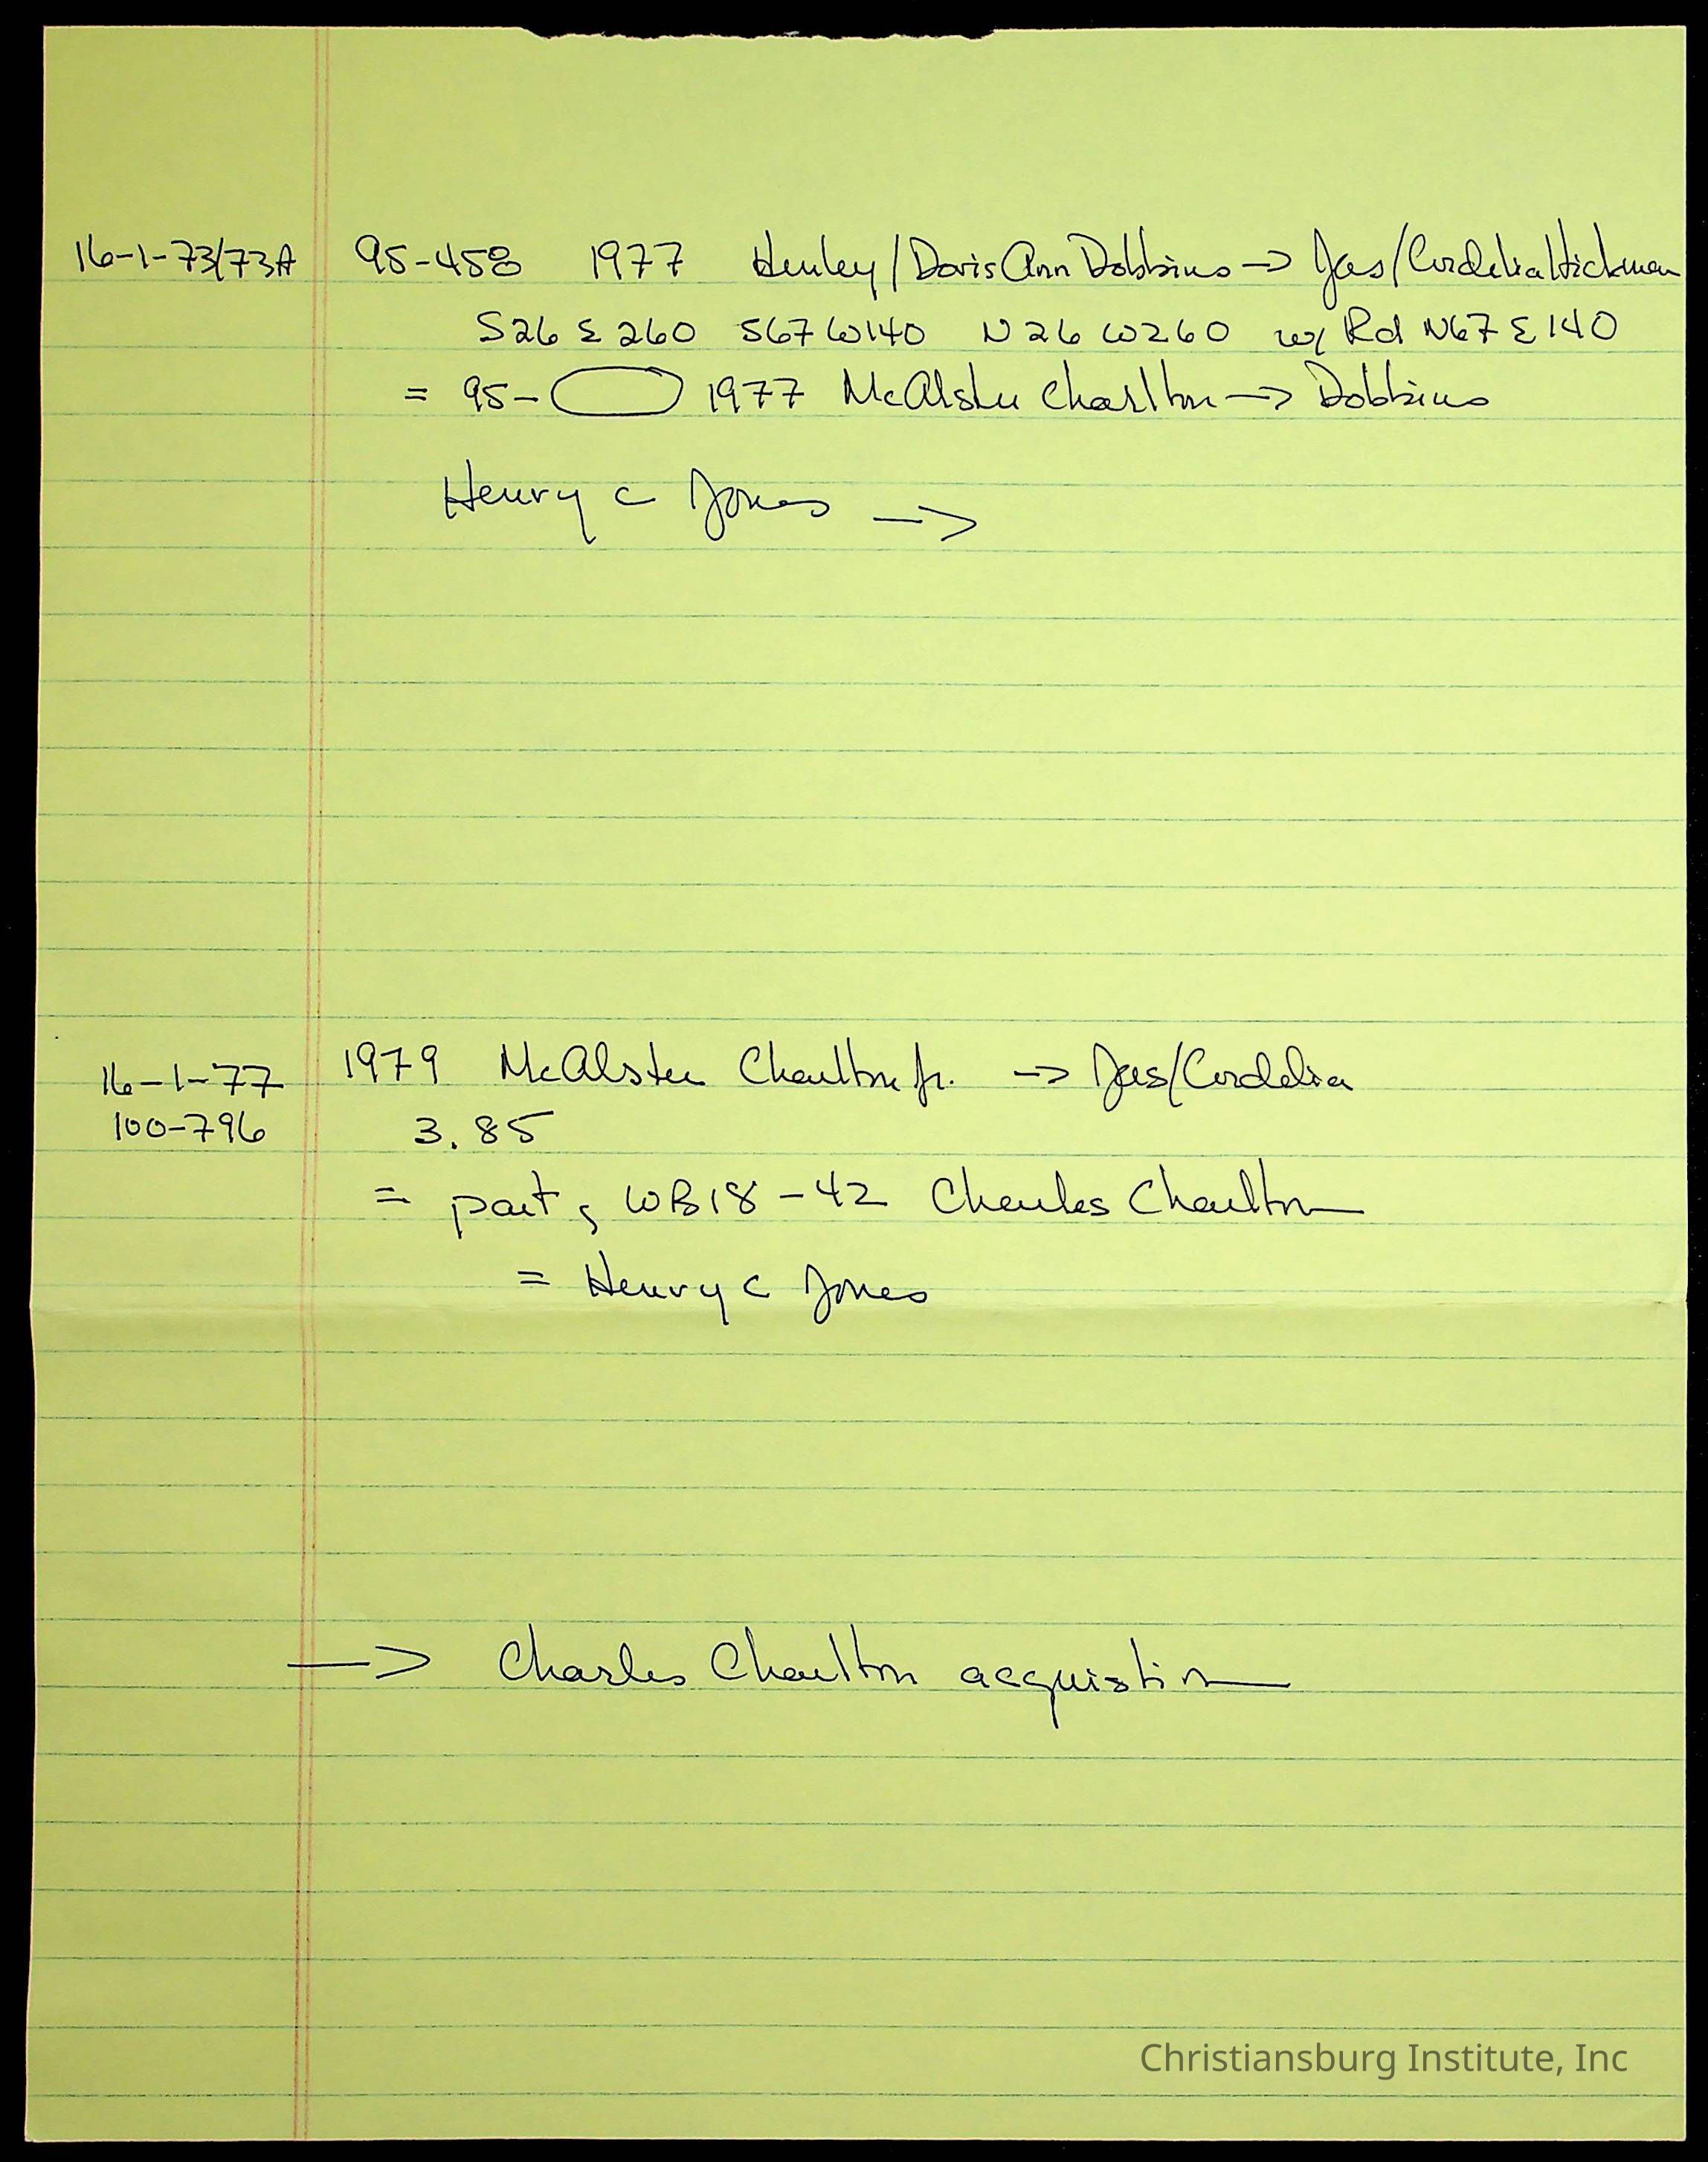 16-1-73/73A 95-458 1977 Henley/Doris Ann Dobbins → Jas/Cordelia Hickman
S26 E260 S67 W140 N26 W260 w/ Rd N67 E140
= 95- 1977 McAlster Charlton → Dobbins
Henry C Jones →
16-1-77 1979 McAlster Charlton Jr. → Jas/Cordelia
100-796 3.85
= part of WB18-42 Charles Charlton
= Henry C Jones
→ Charles Charlton acquistion
Christiansburg Institute, Inc